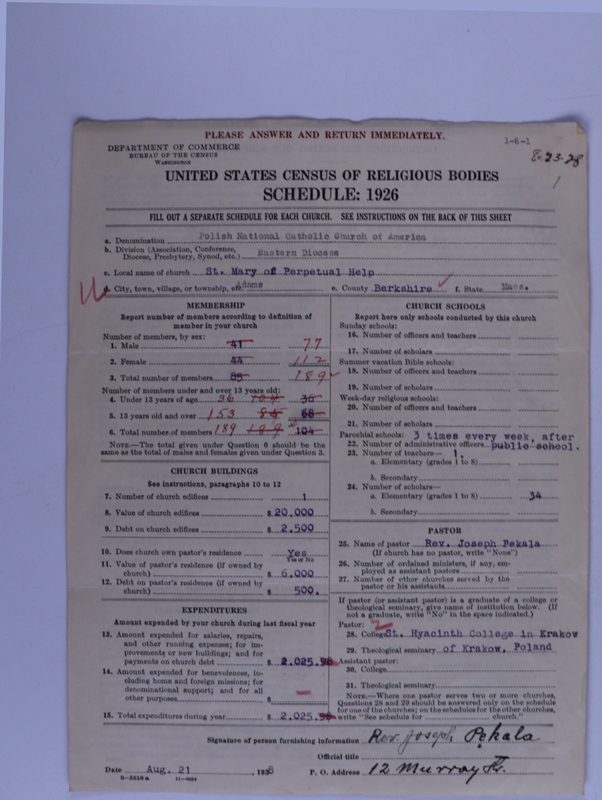 PLEASE ANSWER AND RETURN IMMEDIATELY.
1-6-1
8-23-28
1
DEPARTMENT OF COMMERCE
BUREAU OF THE CENSUS
WASHINGTON
UNITED STATES CENSUS OF RELIGIOUS BODIES
SCHEDULE: 1926
FILL OUT A SEPARATE SCHEDULE FOR EACH CHURCH. SEE INSTRUCTIONS ON THE BACK OF THIS SHEET
a. Denomination Polish National Catholic Church of America
b. Division (Association, Conference, Diocese, Presbytery, Synod, etc.) Eastern Diocese
c. Local name of church St. Mary of Perpetual Help
d. City, town, village, or township, etc. Adams e. County Berkshire f. State Mass.
MEMBERSHIP
Report number of members according to definition of
member in your church
Number of members, by sex:
1. Male 41 77
2. Female 44 112
3. Total number of members 85 189
Number of members under and over 13 years old:
4. Under 13 years of age 36 104 36
5. 13 years old and over 153 85 68
6. Total number of members 189 189 104
NOTE.—The total given under Question 6 should be the
same as the total of males and females given under Question 3.
CHURCH BUILDINGS
See instructions, paragraphs 10 to 12
7. Number of church edifices 1
8. Value of church edifices $ 20.000
9. Debt on church edifices $ 2.500
10. Does church own pastor's residence Yes
Yes or No
11. Value of pastor's residence (if owned by
church) $ 6.000
12. Debt on pastor's residence (if owned by
church) $ 500.
EXPENDITURES
Amount expended by your church during last fiscal year
13. Amount expended for salaries, repairs,
and other running expenses; for im-
provements or new buildings; and for
payments on church debt $ 2.025.
14. Amount expended for benevolences, in-
cluding home and foreign missions; for
denominational support; and for all
other purposes $ —
15. Total expenditures during year $ 2.025.
CHURCH SCHOOLS
Report here only schools conducted by this church
Sunday schools:
16. Number of officers and teachers
17. Number of scholars
Summer vacation Bible schools:
18. Number of officers and teachers
19. Number of scholars
Week-day religious schools:
20. Number of officers and teachers
21. Number of scholars
Parochial schools: 3 times every week, after
22. Number of administrative officers public school.
23. Number of teachers— 1.
a. Elementary (grades 1 to 8)
b. Secondary
24. Number of scholars—
a. Elementary (grades 1 to 8) 34
b. Secondary
PASTOR
25. Name of pastor Rev. Joseph Pekala
(If church has no pastor, write "None")
26. Number of ordained ministers, if any, em-
ployed as assistant pastors
27. Number of other churches served by the
pastor or his assistants
If pastor (or assistant pastor) is a graduate of a college or
theological seminary, give name of institution below. (If
not a graduate, write "No" in the space indicated.)
Pastor:
28. College St. Hyacinth College in Krakow
29. Theological seminary of Krakow, Poland
Assistant pastor:
30. College
31. Theological seminary
NOTE.—Where one pastor serves two or more churches,
Questions 28 and 29 should be answered only on the schedule
for one of the churches; on the schedules for the other churches,
write "See schedule for church."
Signature of person furnishing information Rev. Joseph Pękala
Official title
Date Aug. 21, 1928 P. O. Address 12 Murray St.